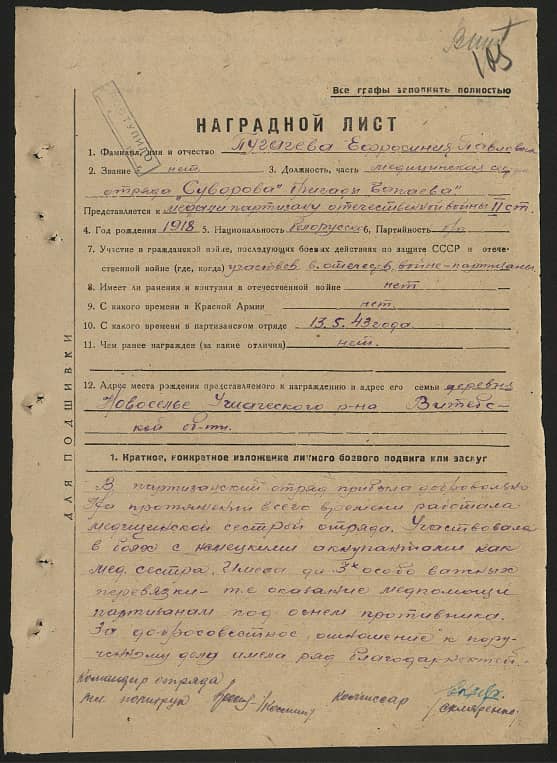 105
Все графы заполнять полностью
НАГРАДНОЙ ЛИСТ
1. Фамилия, имя и отчество Ефросиния Павловна
2. Звание нет 3. Должность, часть медицинская се
отряда "Суворова" бригады Чапаева"
Представляется к медали партизану отечественной войны II ст.
4. Год рождения 1918 5. Национальность белорусска 6. Партийность б/п
7. Участие в гражданской войне, последующих боевых действиях по защите СССР и отече-
ственной войне (где, когда) участвов. в отечеств. войне-партизаны
8. Имеет ли ранения и контузии в отечественной войне нет
9. С какого времени в Красной Армии нет.
10. С какого времени в партизанском отряде 13.5.43 года.
11. Чем ранее награжден (за какие отличия) нет.
12. Адрес места рождения представляемого к награждению и адрес его семьи деревня
Новоселье Ушачского р-на Витебс-
кой об-ти.
ДЛЯ ПОДШИВКИ
1. Краткое, конкретное изложение личного боевого подвига или заслуг
В партизанский отряд прибыла добровольно
На протяжении всего времени работала
медицинской сестрой отряда. Участвовала
в боях с немецкими аккупантами как
мед. сестра. Имела до 3х особо важных
перевязки - т.е оказание медпомощи
партизанам под огнем противника.
За добросовестное отношение к пору-
ченному делу имела ряд благодарностей.
Командир отряда
Комиссар